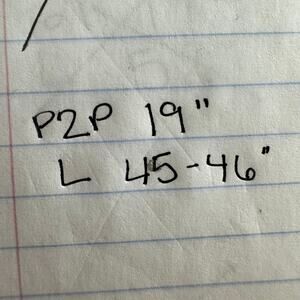 P2P 19"
L 45-46"